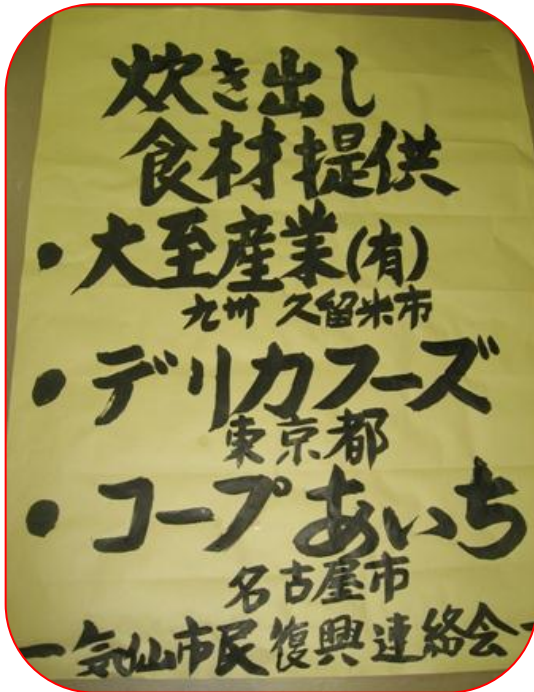 炊き出し
食材提供
・大至産業(有)
九州 久留米市
・デリカフーズ
東京都
・コープあいち
名古屋市
ー気仙市民復興連絡会ー